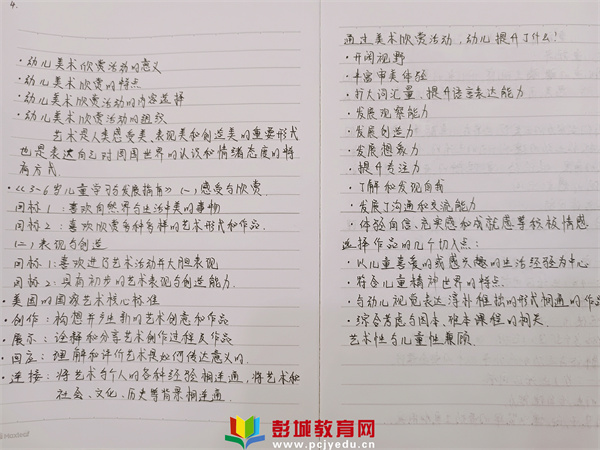 4.
·幼儿美术欣赏活动的意义
·幼儿美术欣赏的特点
·幼儿美术欣赏活动的内容选择
·幼儿美术欣赏活动的组织
艺术是人类感受美、表现美和创造美的重要形式
也是表达自己对周围世界的认识和情绪态度的特
有方式.
·《3~6岁儿童学习与发展指南》(一)感受与欣赏.
目标1:喜欢自然界与生活中美的事物
目标2:喜欢欣赏多种多样的艺术形式和作品.
(二)表现与创造
目标1:喜欢进行艺术活动并大胆表现
目标2:具有初步的艺术表现与创造能力.
·美国的国家艺术核心标准
·创作:构想并产生新的艺术创意和作品
·展示:诠释和分享艺术创作过程及作品
·回应:理解和评价艺术是如何传达意义的.
·连接:将艺术与个人的各种经验相连通,将艺术和
社会、文化、历史等背景相连通.
通过美术欣赏活动,幼儿提升了什么!
·开阔视野
·丰富审美体验
·扩大词汇量、提升语言表达能力
·发展观察能力
·发展创造力
·发展想象力
·提升专注力
·了解和发现自我
·发展了沟通和交流能力
·体验自信、充实感和成就感等积极情感
选择作品的几个切入点:
·以儿童喜爱的或感兴趣的生活经验为中心
·符合儿童精神世界的特点.
·与幼儿视觉表达
的形式相通的作品
·综合考虑与园本、班本课程的相关
艺术性与儿童性兼顾
彭城教育网
www.pcjyedu.cn